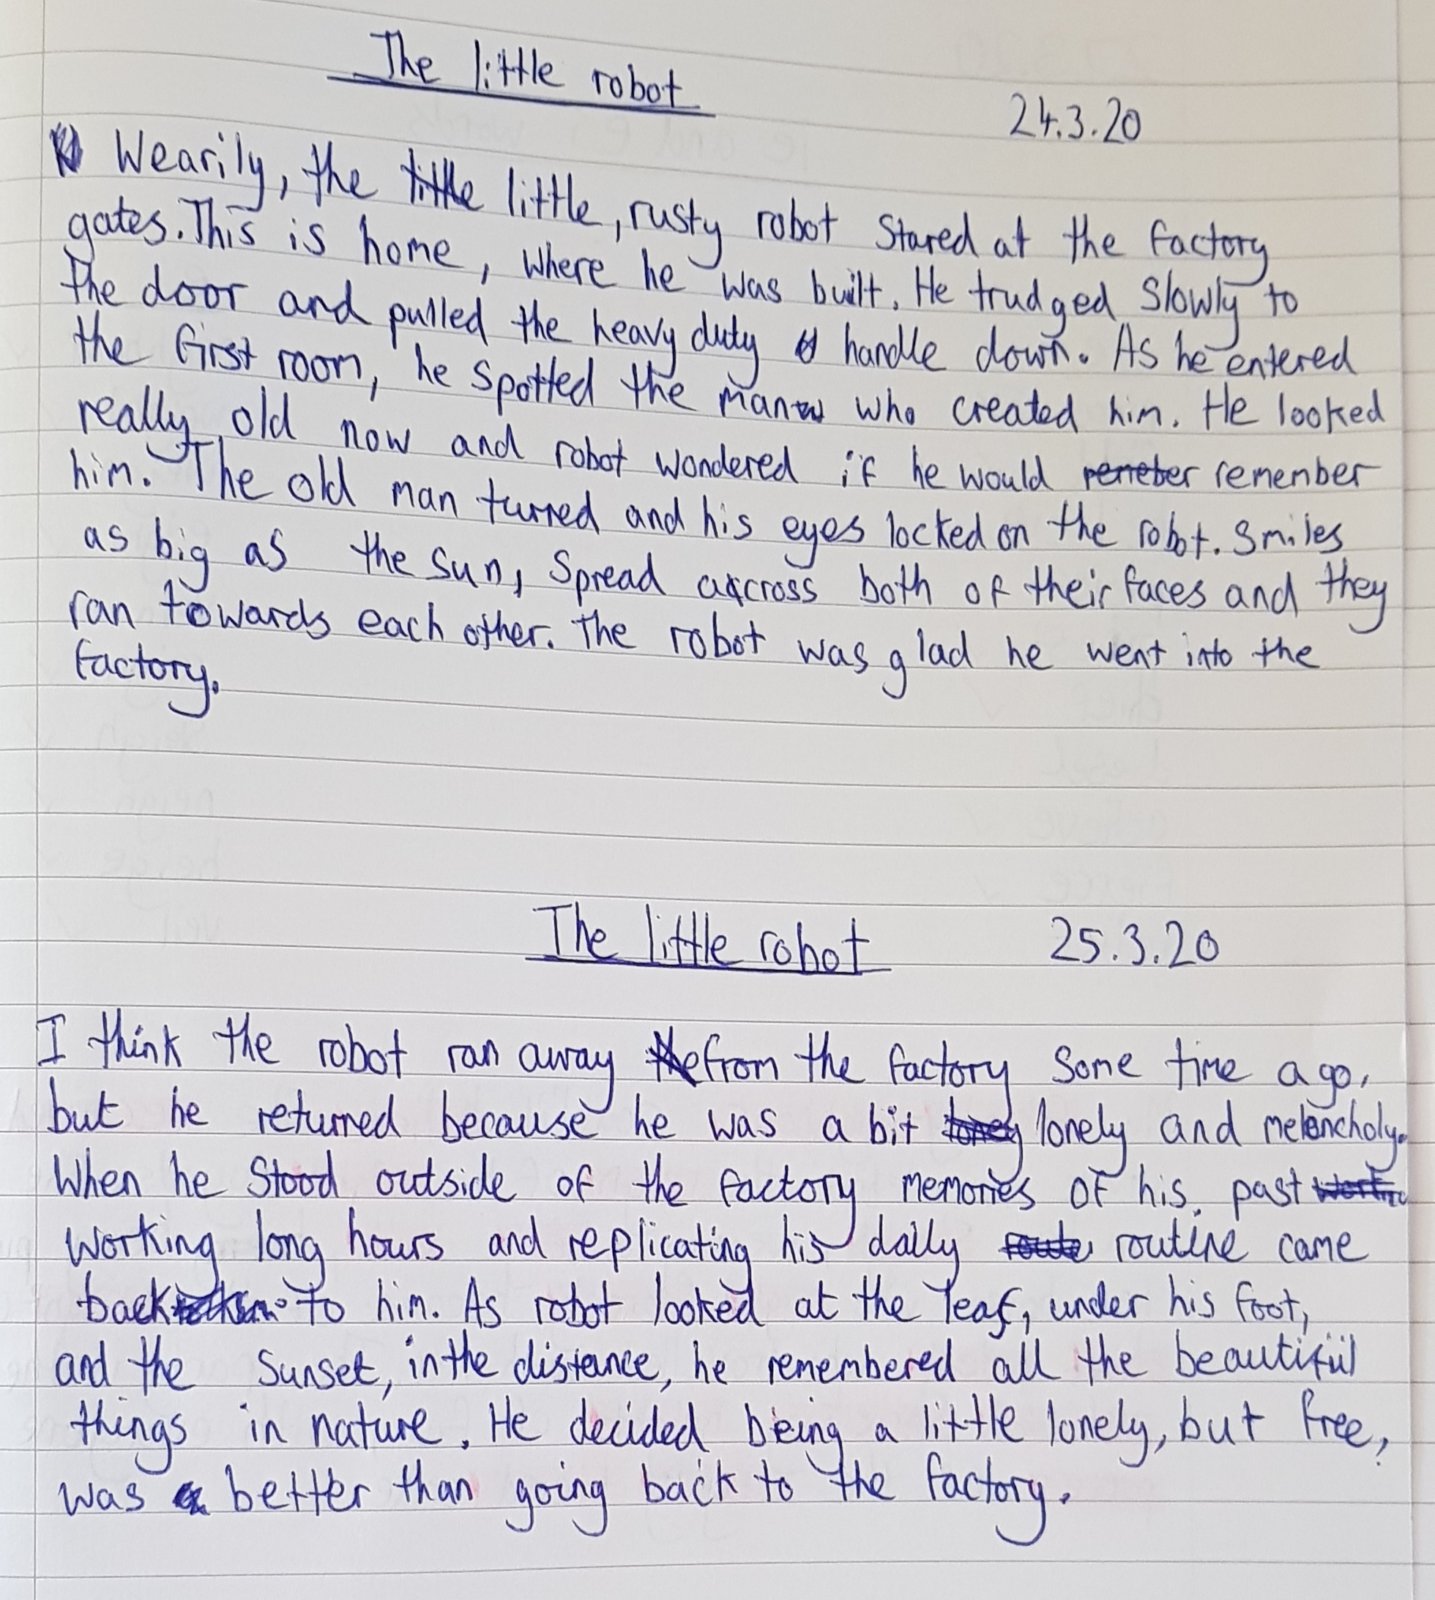 The little robot
24.3.20
Wearily, the little little, rusty robot stared at the factory
gates. This is home, where he was built. He trudged slowly to
the door and pulled the heavy duty handle down. As he entered
the first room, he spotted the man who created him. He looked
really old now and robot wondered if he would remeber remember
him. The old man turned and his eyes locked on the robot. Smiles
as big as the sun, spread accross both of their faces and they
ran towards each other. The robot was glad he went into the
factory.
The little robot 25.3.20
I think the robot ran away the from the factory some time ago,
but he returned because he was a bit loney lonely and melencholy.
When he stood outside of the factory memories of his past
working long hours and replicating his daily route routine came
back to him. As robot looked at the leaf, under his foot,
and the sunset, in the distance, he remembered all the beautiful
things in nature. He decided being a little lonely, but free,
was a better than going back to the factory.